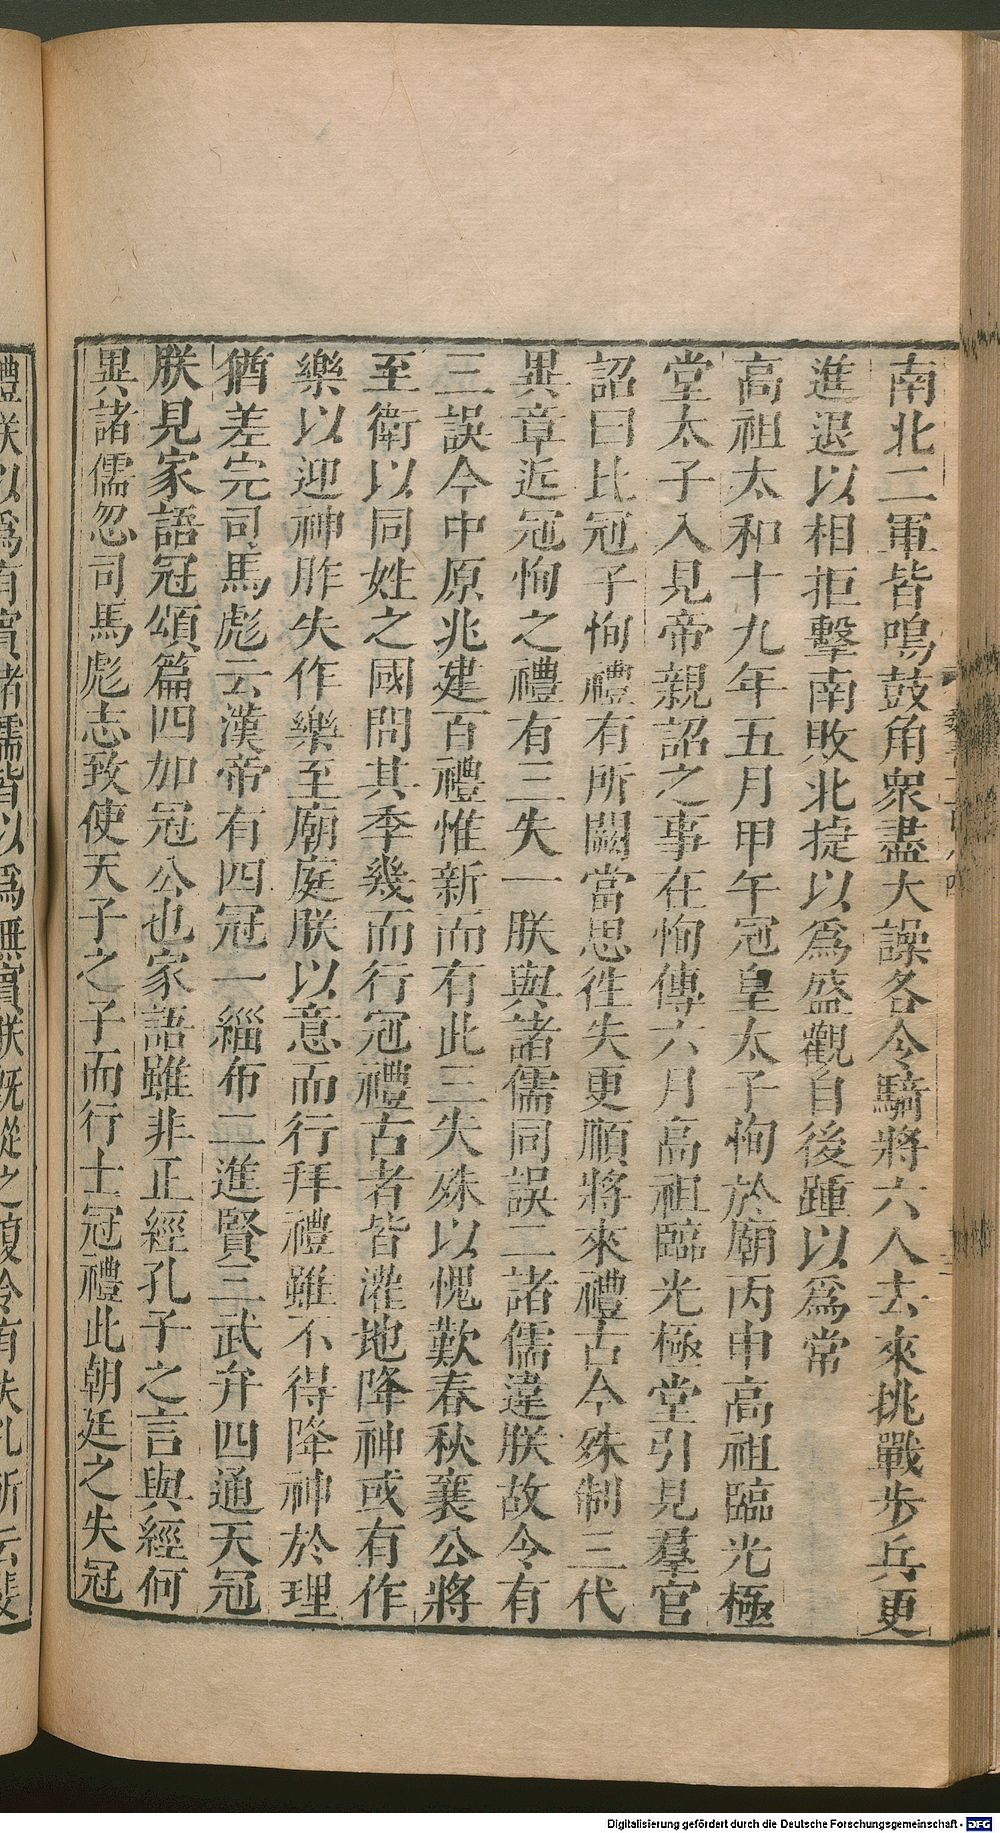 南北二軍皆鳴鼓角衆盡大譟各令騎將六人去來挑戰步兵更
進退以相拒擊南敗北捷以爲盛觀自後踵以爲常
高祖太和十九年五月甲午冠皇太子恂於廟丙申高祖臨光極
堂太子入見帝親詔之事在恂傳六月高祖臨光極堂引見羣官
詔曰比冠子恂禮有所闕當思徃失更順將來禮古今殊制三代
異章近冠恂之禮有三失一朕與諸儒同誤二諸儒違朕故令有
三誤今中原兆建百禮惟新而有此三失殊以愧歎春秋襄公將
至衛以同姓之國問其季幾而行冠禮古者皆灌地降神或有作
樂以迎神胙失作樂至廟庭朕以意而行拜禮雖不得降神於理
猶差完司馬彪云漢帝有四冠一緇布二進賢三武弁四通天冠
朕見家語冠頌篇四加冠公也家語雖非正經孔子之言與經何
異諸儒忽司馬彪志致使天子之子而行士冠禮此朝廷之失冠
禮朕以爲有賓諸儒皆以爲無賓朕旣從之復令有失孔所云斐
Digitalisierung gefördert durch die Deutsche Forschungsgemeinschaft - DFG